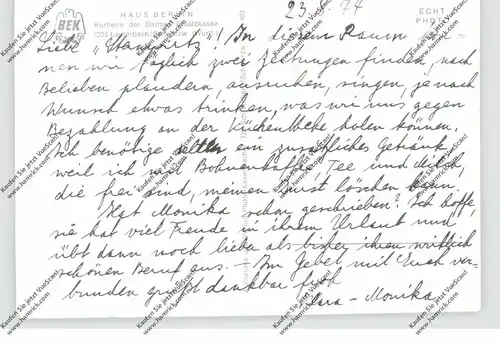 HAUS BERLIN
Kurheim der Barmer Ersatzkasse
BEK
23. 74
ECHT
PHOTO
Liebe "Stammkitz"! In diesem Raum
nen wir täglich zwei Zeitungen finden, nach
Belieben plaudern, ausruhen, singen, je nach
Wunsch etwas trinken, was wir uns gegen
Bezahlung an der Küchentheke holen können.
Ich benötige selten ein zusätzliches Getränk
weil ich mit Bohnenkaffee, Tee und Milch
die frei sind, meinen Durst löschen kann.
Hat Monika schon geschrieben? Ich hoffe,
sie hat viel Freude in ihrem Urlaub und
übt dann noch lieber als bisher ihren wirklich
schönen Beruf aus. – Im Gebet mit Euch ver-
bunden grüßt dankbar froh
- Monika
Kaufen Sie jetzt VueScan!
www.hamrick.com